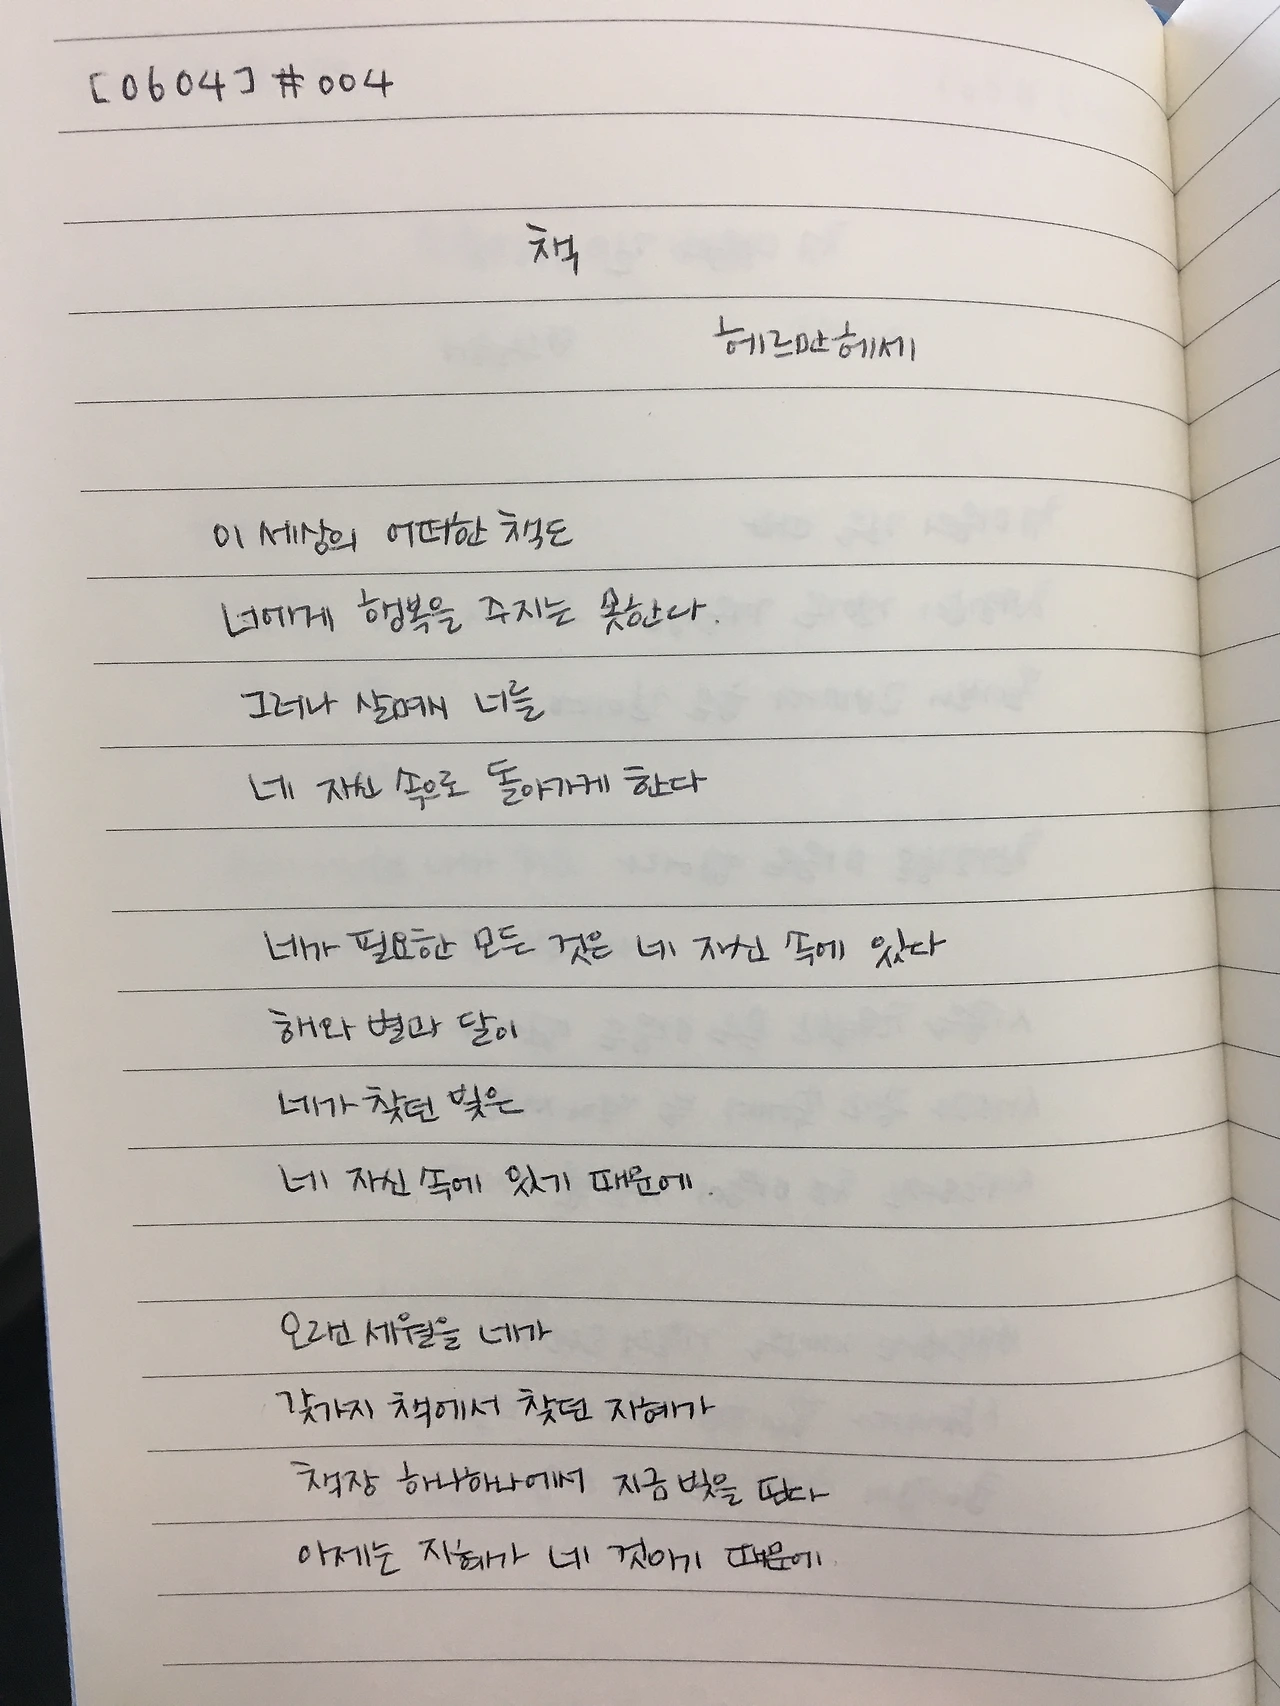 [0604] #004
책
헤르만헤세
이 세상의 어떠한 책도
너에게 행복을 주지는 못한다.
그러나 살며시 너를
네 자신 속으로 돌아가게 한다
네가 필요한 모든 것은 네 자신 속에 있다
해와 별과 달이
네가 찾던 빛은
네 자신 속에 있기 때문에.
오랜 세월을 네가
갖가지 책에서 찾던 지혜가
책장 하나하나에서 지금 빛을 띤다
이제는 지혜가 네 것이기 때문에.